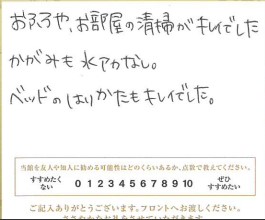 おフロや、お部屋の清掃がキレイでした
かがみも水アカなし。
ベッドのはりかたもキレイでした。
当館を友人や知人に勧める可能性はどのくらいあるか、点数で教えてください。
すすめたく
ない
0 1 2 3 4 5 6 7 8 9 10
ぜひ
すすめたい
ご記入ありがとうございます。フロントへお渡しください。